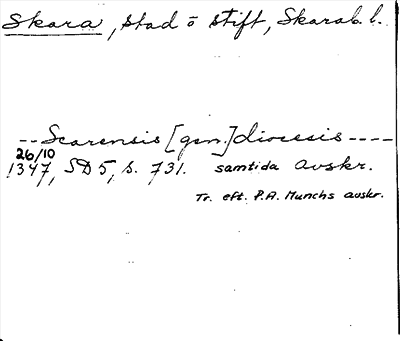 Skara, stad o stift, Skarab. l.
-- Scarensis [gen.] diocesis ----
26/10
1347, SD 5, s. 731. samtida avskr.
Tr. eft. P.A. Munchs avskr.